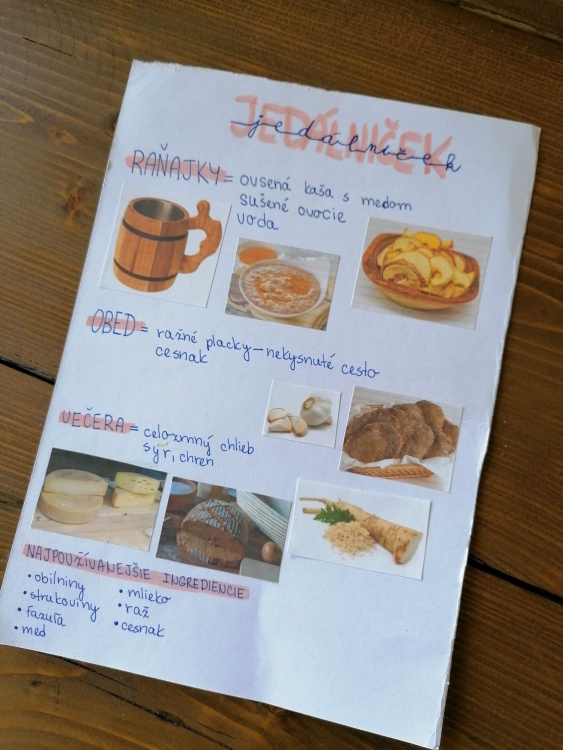 JEDÁLNIČEK
jedálniček
RAŇAJKY = ovsená kaša s medom
sušené ovocie
voda
OBED = ražné placky – nekysnuté cesto
cesnak
VEČERA = celozrnný chlieb
syr, chren
NAJPOUŽÍVANEJŠIE INGREDIENCIE
• obilniny
• strukoviny
• fazuľa
• med
• mlieko
• raž
• cesnak